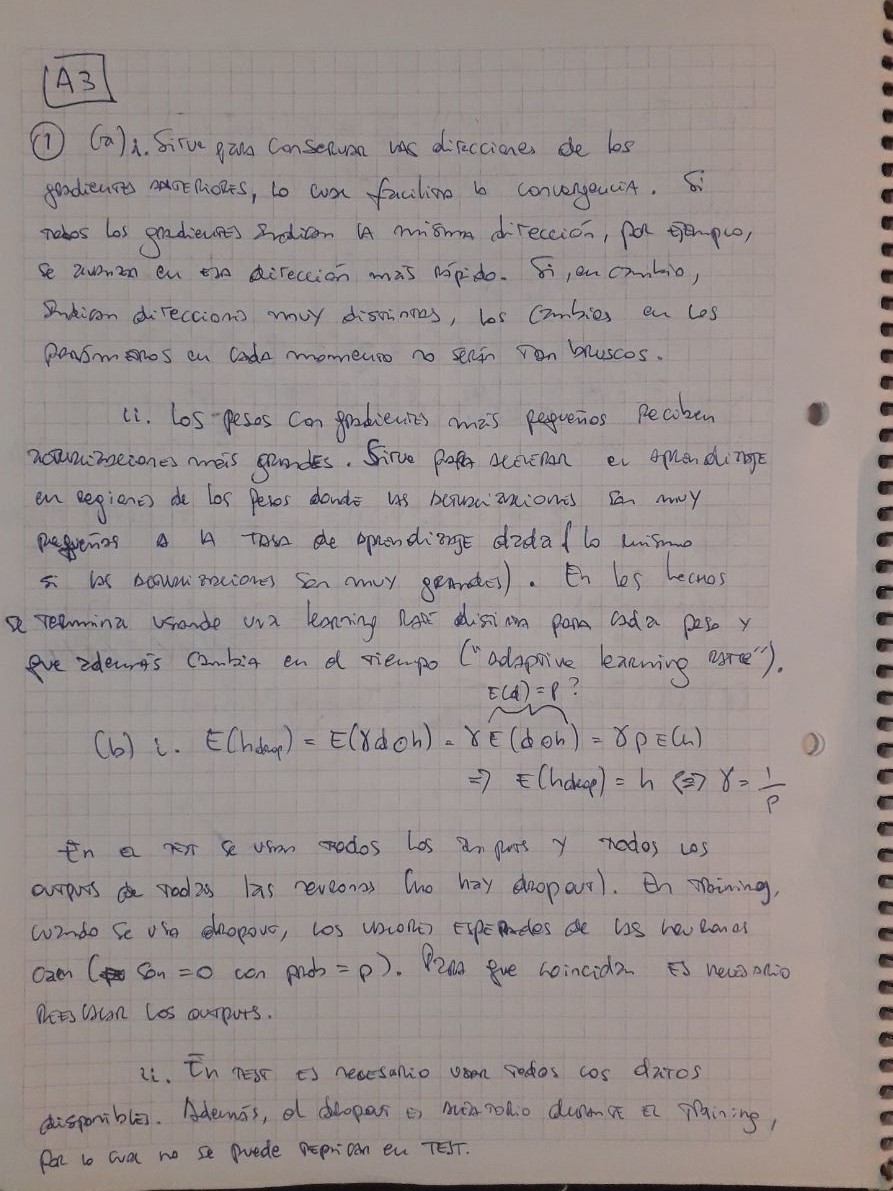 A3
① (a) i. Sirve para conservar las direcciones de los
gradientes ANTERIORES, lo cual facilita la convergencia. Si
todos los gradientes indican la misma dirección, por ejemplo,
se avanza en esa dirección más rápido. Si, en cambio,
indican direcciones muy distintas, los cambios en los
parámetros en cada momento no serán tan bruscos.
ii. Los pesos con gradientes más pequeños reciben
actualizaciones más grandes. Sirve para acelerar el aprendizaje
en regiones de los pesos donde las actualizaciones son muy
pequeñas a la tasa de aprendizaje dada (lo mismo
si las actualizaciones son muy grandes). En los hechos
se termina usando una learning rate distinta para cada peso y
que además cambia en el tiempo ("adaptive learning rate").
E(d) = p ?
(b) i. E(h_drop) = E(γ d ⊙ h) = γ E(d ⊙ h) = γ p E(h)
⇒ E(h_drop) = h ⇔ γ = 1/p
En el test se usan todos los inputs y todos los
outputs de todas las neuronas (no hay dropout). En training,
cuando se usa dropout, los valores esperados de las neuronas
caen (son = 0 con prob = p). Para que coincidan es necesario
reescalar los outputs.
ii. En TEST es necesario usar todos los datos
disponibles. Además, el dropout es aleatorio durante el training,
por lo cual no se puede replicar en TEST.